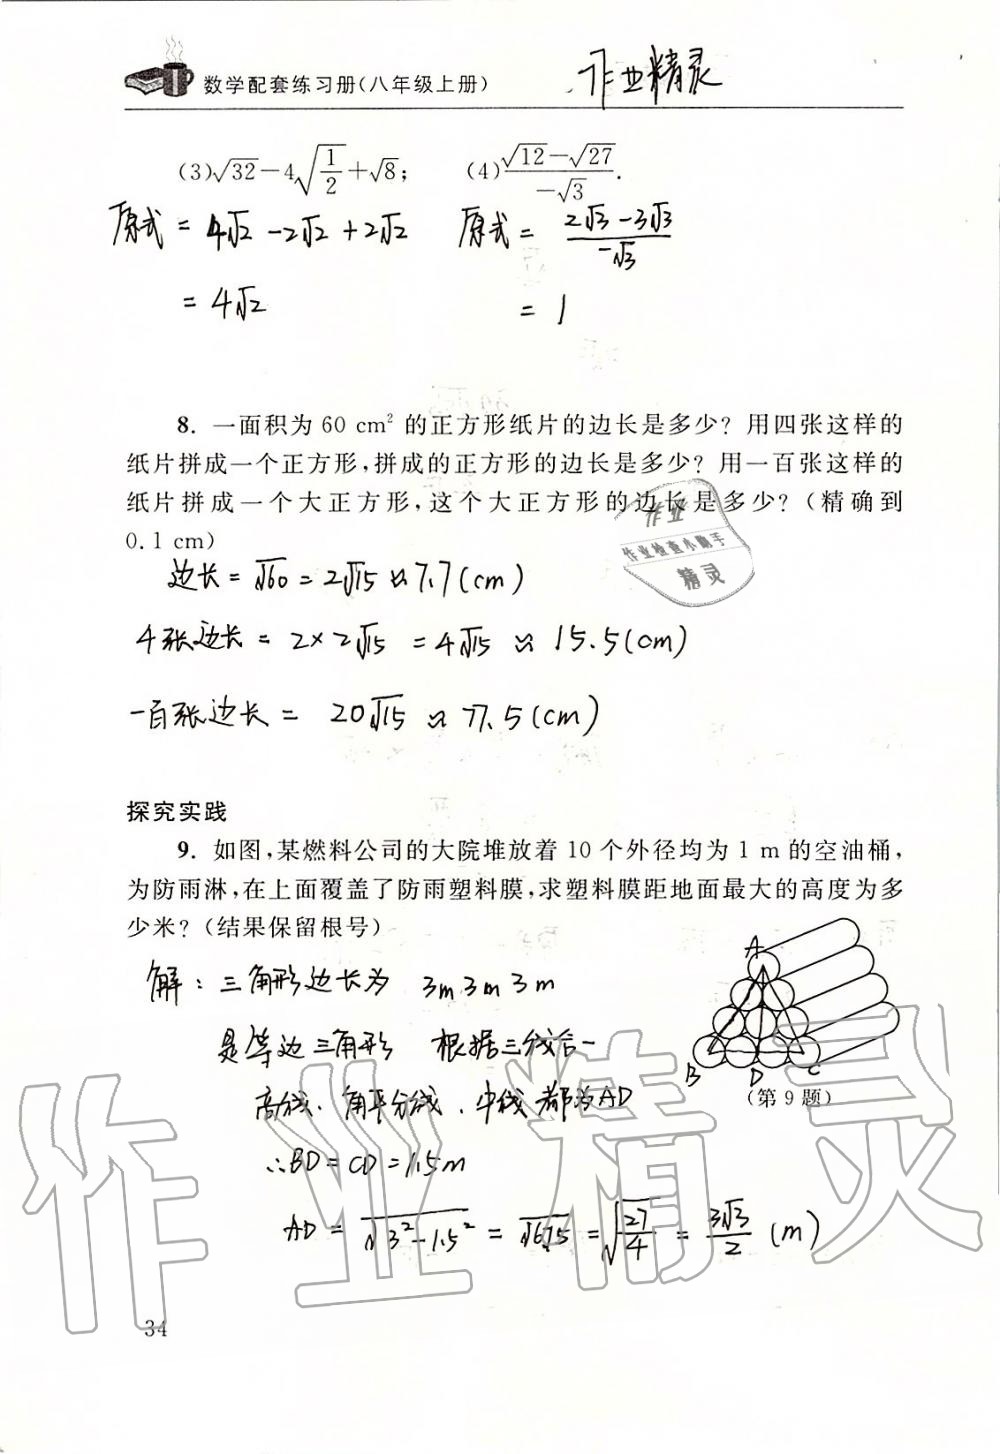 数学配套练习册(八年级上册)
作业精灵
(3)√32−4√(1/2)+√8; (4)(√12−√27)/(−√3).
原式 = 4√2 − 2√2 + 2√2 原式 = (2√3−3√3)/(−√3)
= 4√2 = 1
8. 一面积为 60 cm² 的正方形纸片的边长是多少？用四张这样的
纸片拼成一个正方形,拼成的正方形的边长是多少？用一百张这样的
纸片拼成一个大正方形,这个大正方形的边长是多少？(精确到
0.1 cm)
边长 = √60 = 2√15 ≈ 7.7(cm)
作业检查小助手
精灵
4张边长 = 2×2√15 = 4√15 ≈ 15.5(cm)
一百张边长 = 20√15 ≈ 77.5(cm)
探究实践
9. 如图,某燃料公司的大院堆放着 10 个外径均为 1 m 的空油桶,
为防雨淋,在上面覆盖了防雨塑料膜,求塑料膜距地面最大的高度为多
少米？(结果保留根号)
解：三角形边长为 3m 3m 3m
是等边三角形 根据三线合一
高线、角平分线、中线都为AD
∴BD = CD = 1.5m
AD = √(3²−1.5²) = √6.75 = √(27/4) = 3√3/2 (m)
A
B D C
(第 9 题)
34
作业精灵